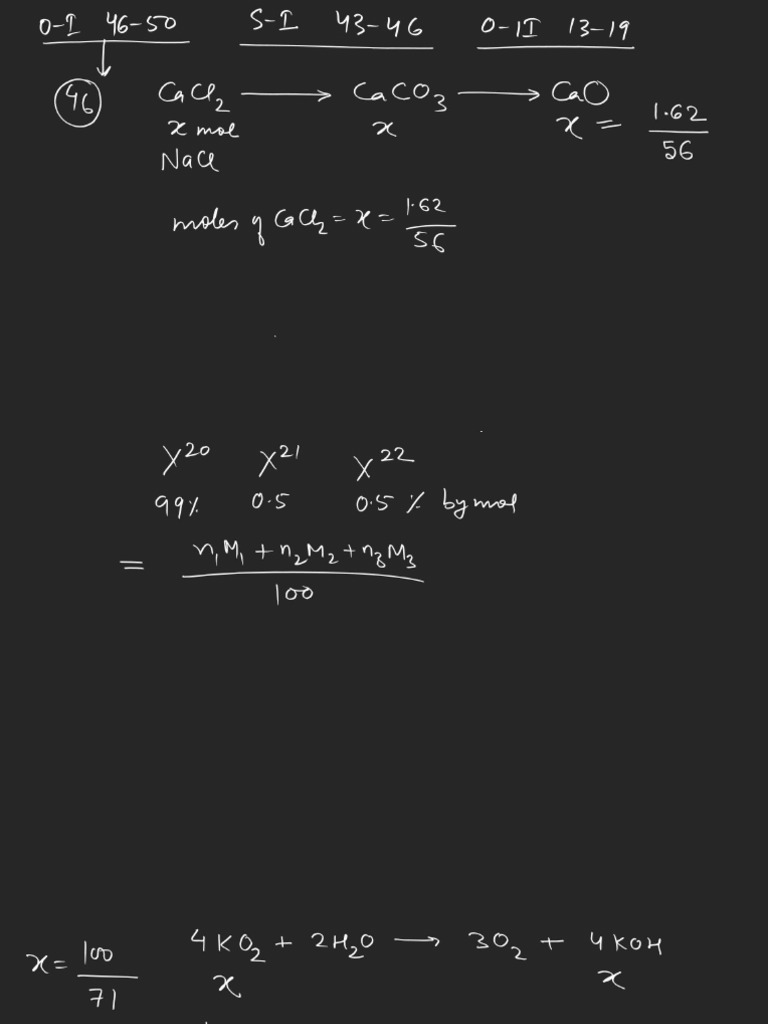 O-I 46-50 S-I 43-46 O-II 13-19
46 CaCl₂ ⟶ CaCO₃ ⟶ CaO
x mol x x = 1.62/56
NaCl
moles of CaCl₂ = x = 1.62/56
X²⁰ X²¹ X²²
99% 0.5 0.5 % by mol
= n₁M₁ + n₂M₂ + n₃M₃ / 100
4KO₂ + 2H₂O ⟶ 3O₂ + 4KOH
x = 100/71 x x